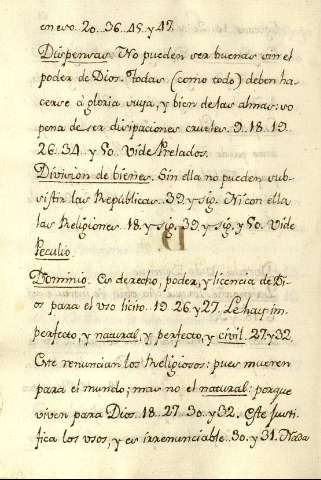 en eso. 20..36..45. y 47.
Dispensas. No pueden ser buenas sin el
poder de Dios. Todas (como todo) deben ha-
cerse á gloria suya, y bien de las almas: so
pena de ser disipaciones crueles. 9..18..19..
26..34.. y 50.. Vide Prelados.
Division de bienes. Sin ella no pueden sub-
sistir las Repúblicas..39. y sig. Ni con ella
las Religiones. 18. y sig. 39. y sig. y 50. Vide
Peculio.
Dominio. Es derecho, poder, y licencia de Di-
os para el uso licito. 19..26 y 27. Le hay im-
perfecto, y natural, y perfecto, y civil. 27. y 32.
Este renuncian los Religiosos: pues mueren
para el mundo; mas no el natural: porque
viven para Dios. 18..27..30.. y 32. Este justi-
fica los usos, y es irrenunciable..30. y 31. Nada